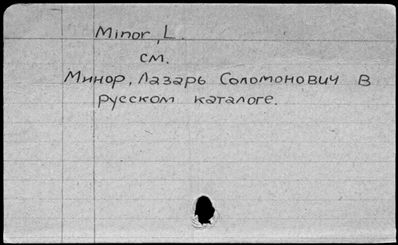 Minor, L.
см.
Минор, Лазарь Соломонович в
русском каталоге.